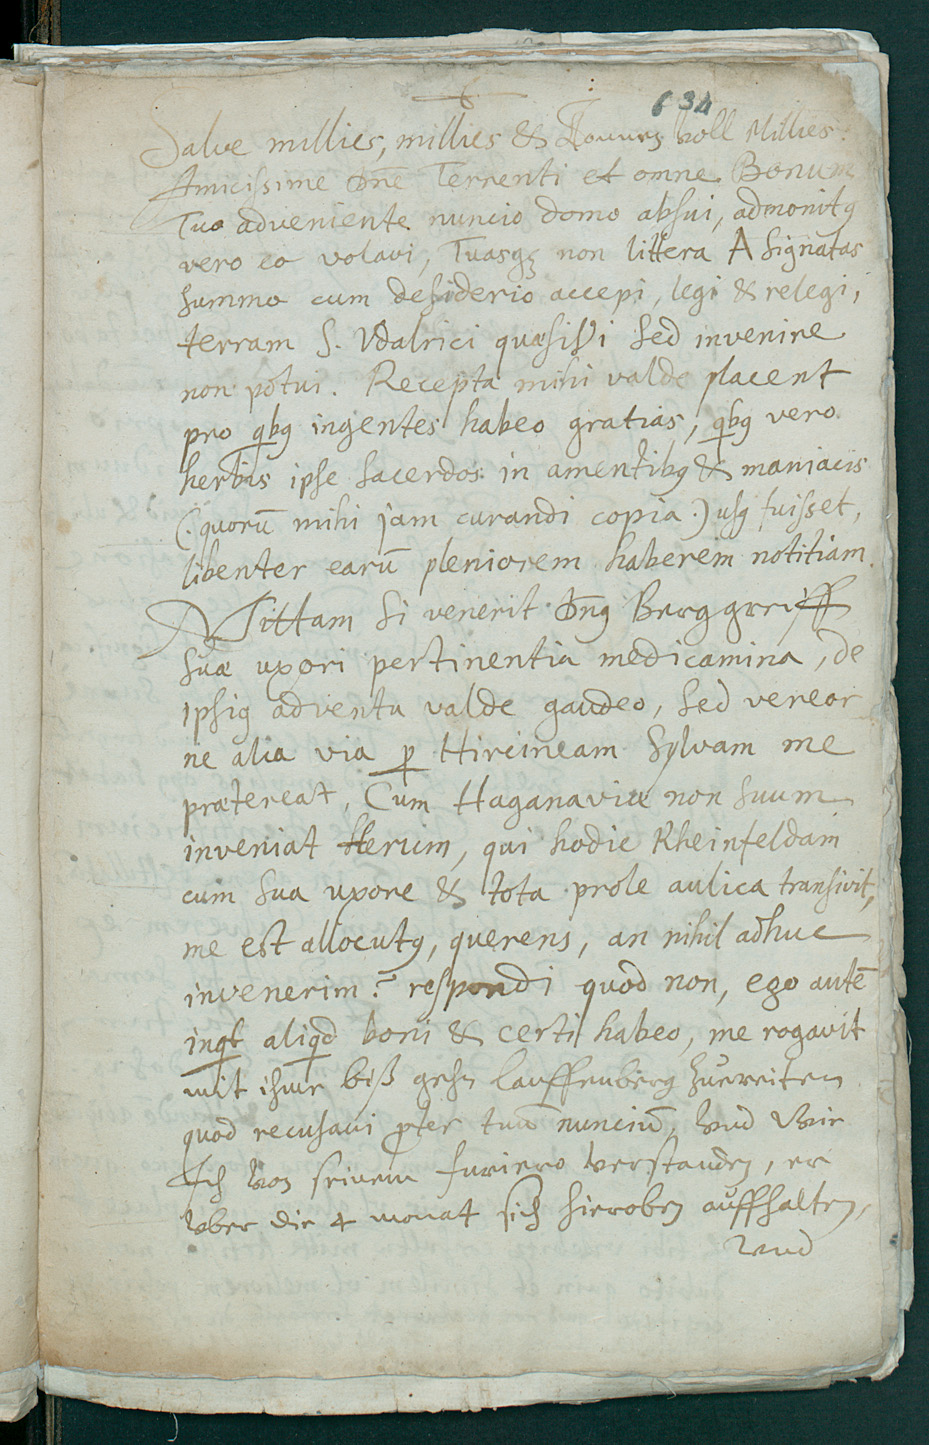 634
Salve millies, millies & Tonnen voll Millies.
Amicissime Dne Terrenti et omne Bonum
Tuo adveniente nuncio domo absui, admonitꝰ
vero eo volavi, Tuasqꝫ non littera A signatas
summo cum desiderio accepi, legi & relegi,
terram S. Vdalrici quæsivi sed invenire
non potui. Recepta mihi valde placent
pro qbꝰ ingentes habeo gratias, qbꝰ vero
herbis ipse sacerdos in amentibꝰ & maniacis
(: quorū mihi jam curandi copia :) usꝰ fuisset,
libenter earū pleniorem haberem notitiam.
Mittam si venerit Dnꝰ Berggreiff
suæ uxori pertinentia medicamina, de
ipsiꝰ adventu valde gaudeo, sed vereor
ne alia via ꝑ Hircineam Sylvam me
prætereat, Cum Haganaviæ non suum
inveniat Herum, qui hodie Rheinfeldam
cum sua uxore & tota prole aulica transivit,
me est allocutꝰ, querens, an nihil adhuc
invenerim? respondi quod non, ego autē
inqt aliqd boni & certi habeo, me rogavit
mit ihme biß gehn Lauffenberg zue reiten
quod recusavi ꝓter tuū nunciū, vnd wie
Ich von seinem furiero verstanden, er
vber die 4 monat sich hieroben auffhalten,
vnd